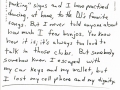 parking" signs and I have practiced
dancing, at home, to the DJ's favorite
songs. But I never told anyone about
how much I fear banjos. You know
how it is, it's always too loud to
talk in those clubs. But somebody
somehow knew. I escaped with
my car keys and my wallet, but
I lost my cell phone and my dignity